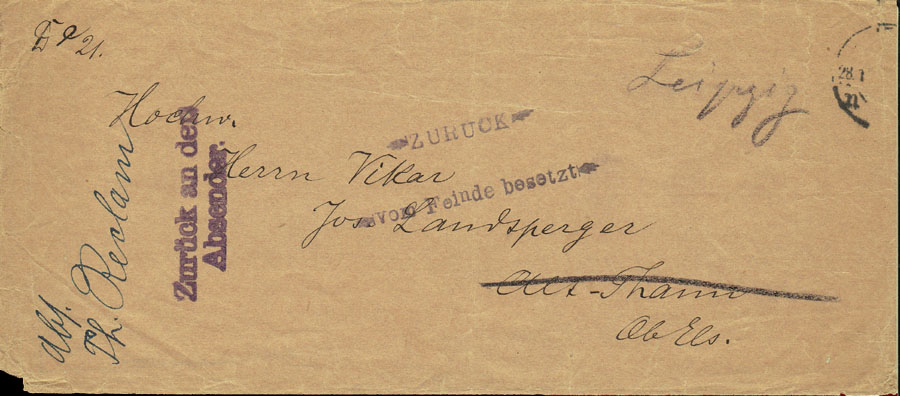 21.
Leipzig
28.1
Hochw.
Herrn Vikar
Jos. Landsperger
Alt-Thann
ObEls.
ZURÜCK
vom Feinde besetzt
Zurück an den
Absender.
Abs.
Th. Reclam